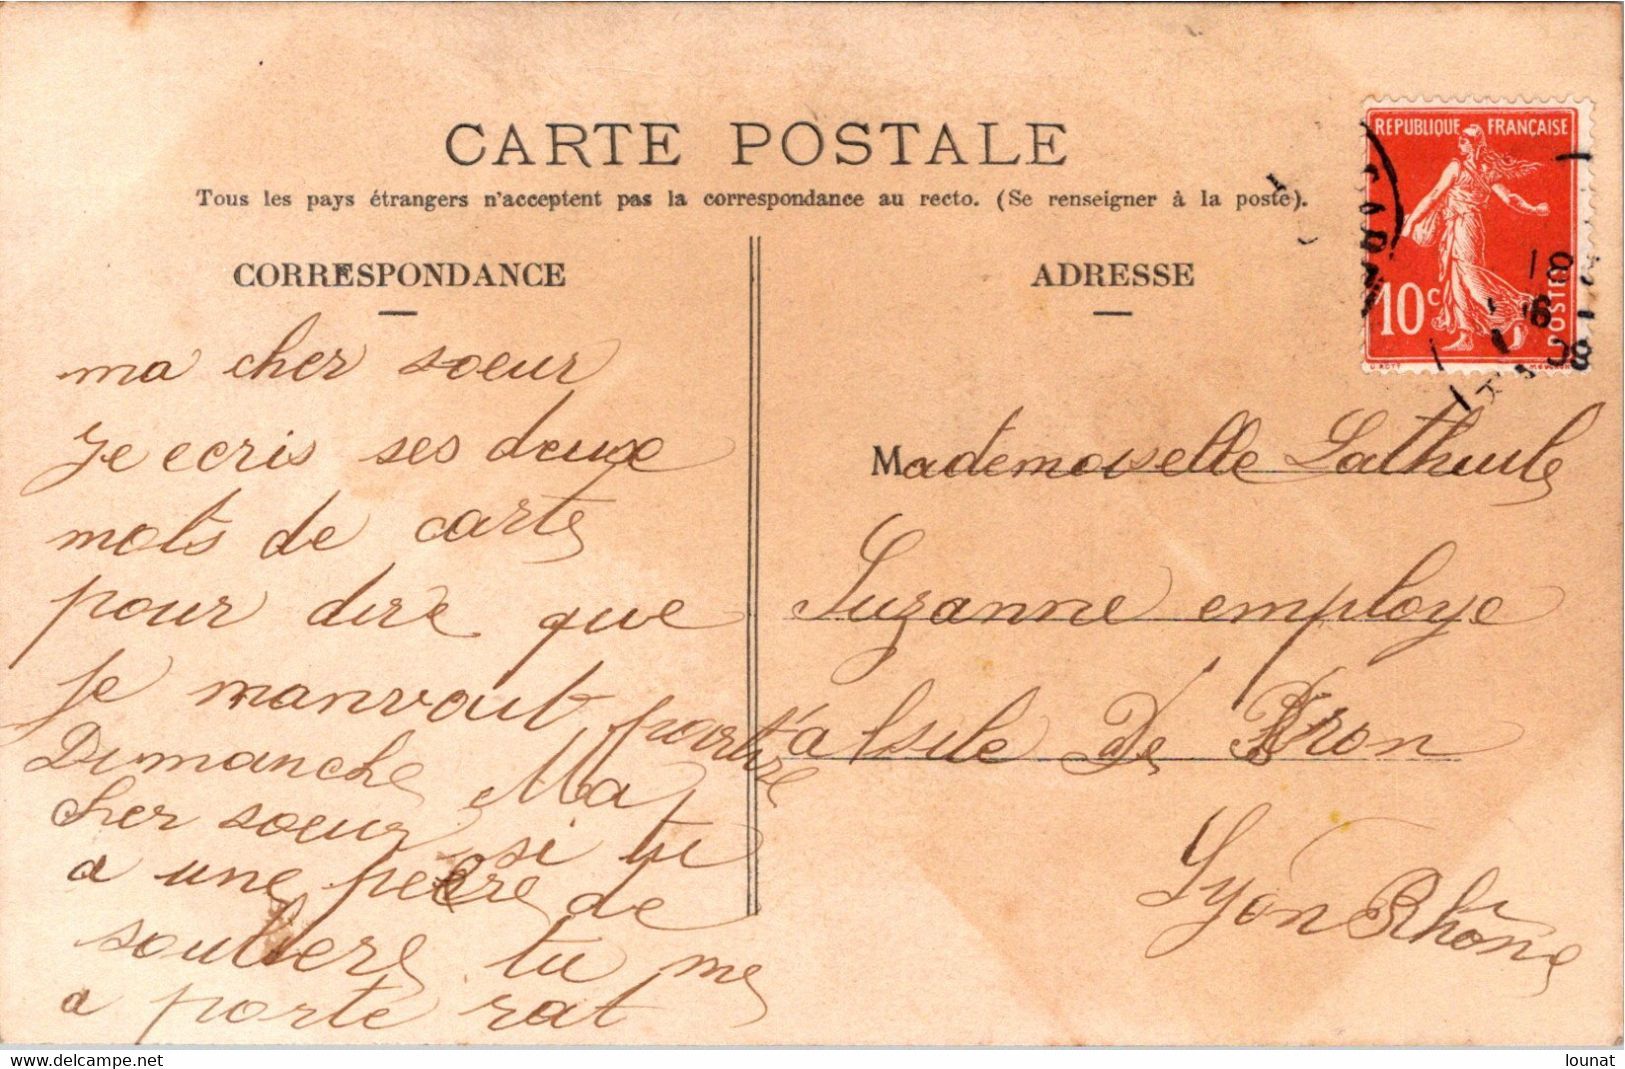 CARTE POSTALE
Tous les pays étrangers n'acceptent pas la correspondance au recto. (Se renseigner à la poste).
CORRESPONDANCE
ma cher soeur
Je ecris ses deux
mots de carte
pour dire que
Je manvout partire
Dimanche Ma
cher soeur si tu
a une peere de
souliere tu me
a porte rat
ADRESSE
Mademoiselle Lathuile
Suzanne employe
a lsile De Bron
Lyon Rhône
REPUBLIQUE FRANÇAISE
10 c
POSTES
18
6
08
delcampe.net
lounat